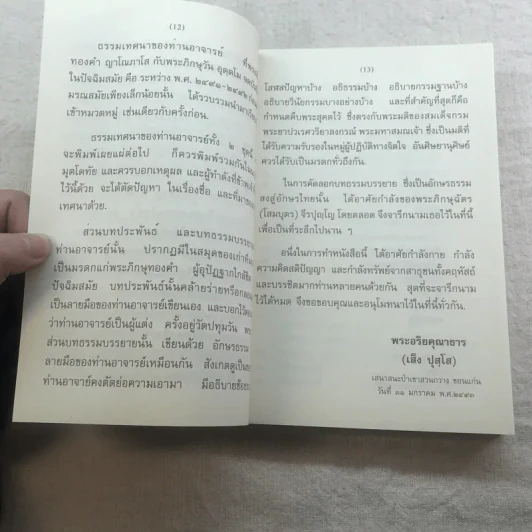 (12)
ธรรมเทศนาของท่านอาจารย์ ที่พระ
ทองคำ ญาโณภาโส กับพระภิกษุวัน อุตฺตโม จดไว้
ในปัจฉิมสมัย คือ ระหว่าง พ.ศ. ๒๔๙๑-๒๔๙๒ ก่อน
มรณสมัยเพียงเล็กน้อยนั้น ได้รวบรวมนำมาเรียง
เข้าหมวดหมู่ เช่นเดียวกับครั้งก่อน.
ธรรมเทศนาของท่านอาจารย์ทั้ง ๒ ชุดนี้
จะพิมพ์เผยแผ่ต่อไป ก็ควรพิมพ์รวมกันในนาม
มุตโตทัย และควรบอกเหตุผล และผู้ทำดังที่ข้าพเจ้า
ไว้นี้ด้วย จะได้ตัดปัญหา ในเรื่องชื่อ และที่มาของ
เทศนาด้วย.
ส่วนบทประพันธ์ และบทธรรมบรรยาย
ท่านอาจารย์นั้น ปรากฏมีในสมุดของเก่าที่ตก
เป็นมรดกแก่พระภิกษุทองคำ ผู้อุปัฏฐากใกล้ชิด
ปัจฉิมสมัย บทประพันธ์นั้นคล้ายร่ายหรือกลอน
เป็นลายมือของท่านอาจารย์เขียนเอง และบอกไว้ตอน
ว่าท่านอาจารย์เป็นผู้แต่ง ครั้งอยู่วัดปทุมวัน พระ
ส่วนบทธรรมบรรยายนั้น เขียนด้วย อักษรธรรม
ลายมือของท่านอาจารย์เหมือนกัน สังเกตดูเป็น
ท่านอาจารย์คงตัดย่อความเอามา มีอธิบายข้อธรรม
(13)
โสฬสปัญหาบ้าง อธิธรรมบ้าง อธิบายกรรมฐานบ้าง
อธิบายวินัยกรรมบางอย่างบ้าง และที่สำคัญที่สุดก็คือ
กำหนดคืบพระสุคตไว้ ซึ่งตรงกับพระมติของสมเด็จกรม
พระยาปวเรศวริยาลงกรณ์ พระมหาสมณเจ้า ซึ่งเป็นมติที่
ได้รับความรับรองในหมู่ผู้ปฏิบัติทางจิตใจ อันศิษยานุศิษย์
ควรได้รับเป็นมรดกทั่วถึงกัน.
ในการคัดลอกบทธรรมบรรยาย ซึ่งเป็นอักษรธรรม
ลงสู่อักษรไทยนั้น ได้อาศัยกำลังของพระภิกษุฉัตร
(โสมบุตร) จีรปุญฺโญ โดยตลอด จึงจารึกนามเธอไว้ในที่นี้
เพื่อเป็นที่ระลึกไปนาน ๆ
อนึ่งในการทำหนังสือนี้ ได้อาศัยกำลังกาย กำลัง
ความคิดสติปัญญา และกำลังทรัพย์จากสาธุชนทั้งคฤหัสถ์
และบรรชิตมากท่านหลายคนด้วยกัน สุดที่จะจารึกนาม
ไว้ได้หมด จึงขอขอบคุณและอนุโมทนาไว้ในที่นี้ทั่วกัน.
พระอริยคุณาธาร
(เส็ง ปุสฺโส)
เสนาสนะป่าเขาสวนกวาง ขอนแก่น
วันที่ ๓๑ มกราคม พ.ศ.๒๔๙๓